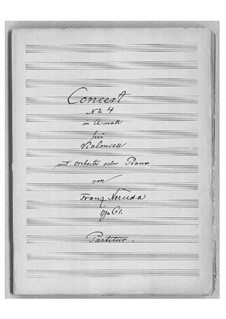 Concert
No 4
in A-moll
für
Violoncell
mit Orchester oder Piano
von
Franz Neruda
Op. 61.
Partitur.